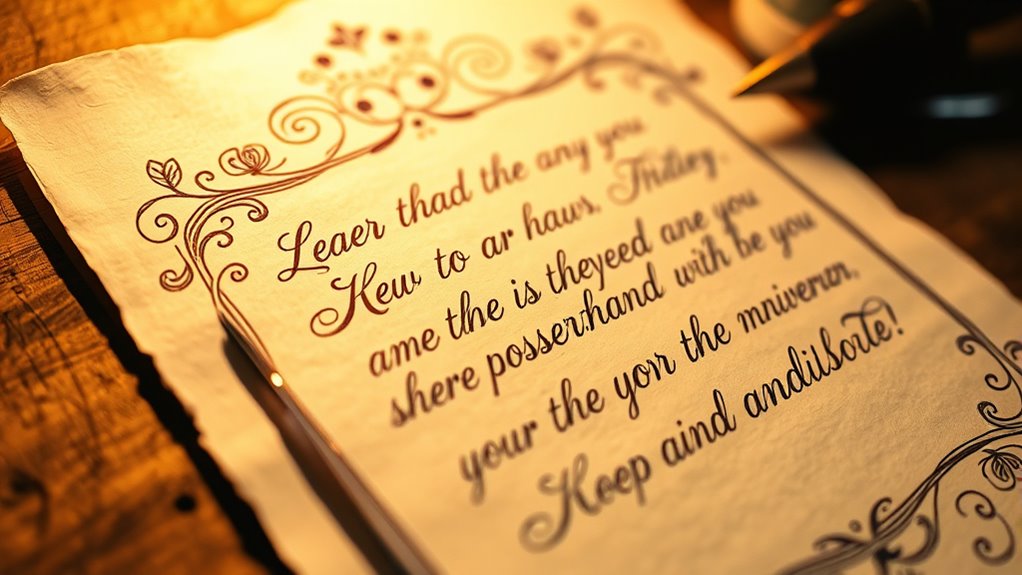 Leaer thad the any you
Kew to ar haws. Thidlay.
ame the is theyeed ane you
shere posser:hand with be you
your the yorr the mniveren.
Koep aind andilsorte!